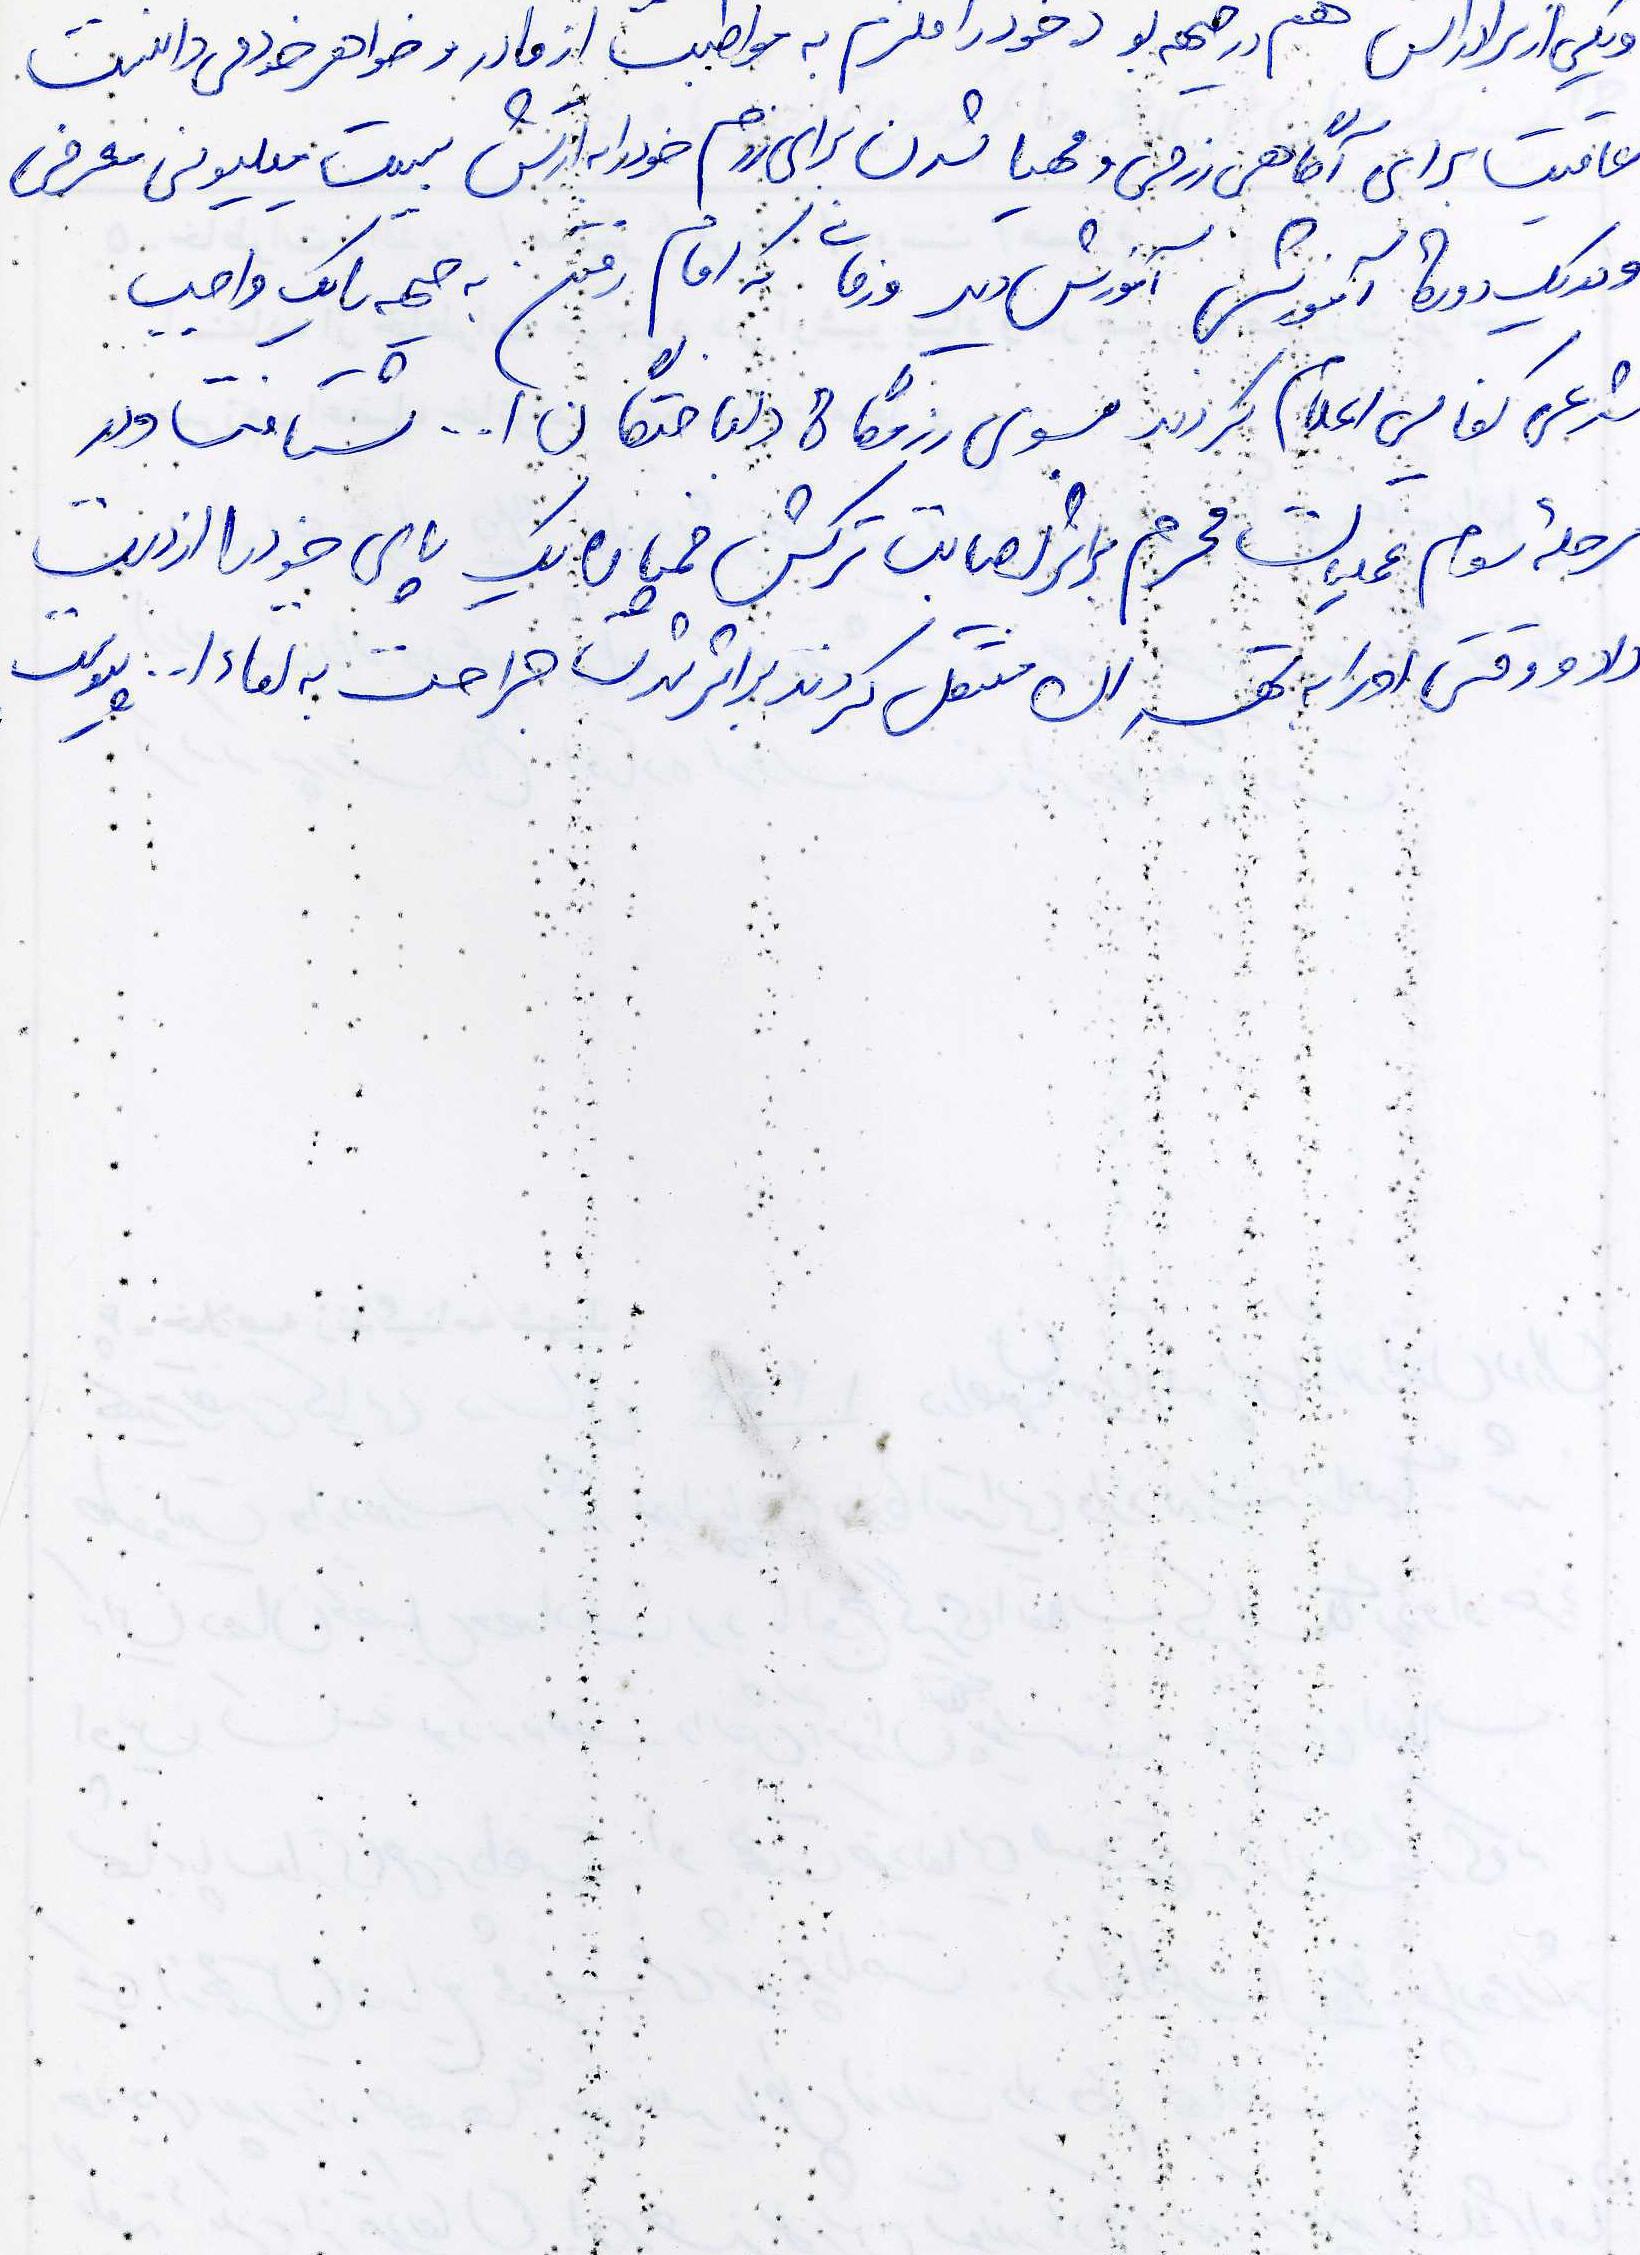 ویکی از برادرانش هم در جبهه بود خود را ملزم به مواظبت از مادر و خواهر خود می دانست
عاقبت برای آگاهی رزمی و مهیا شدن برای رزم خود را به ارتش بیست میلیونی معرفی
و در یک دورۀ آموزشی آموزش دید و زمانی که امام رفتن به جبهه را یک واجب
شرعی کفایی اعلام کردند بسوی رزمگاه دلباختگان ا... شتافت و در
مرحلۀ سوم عملیات محرم براثر اصابت ترکش خمپاره یک پای خود را از دست
داد و وقتی او را به تهران منتقل کردند براثر شدت جراحت به لقاء ا... پیوست